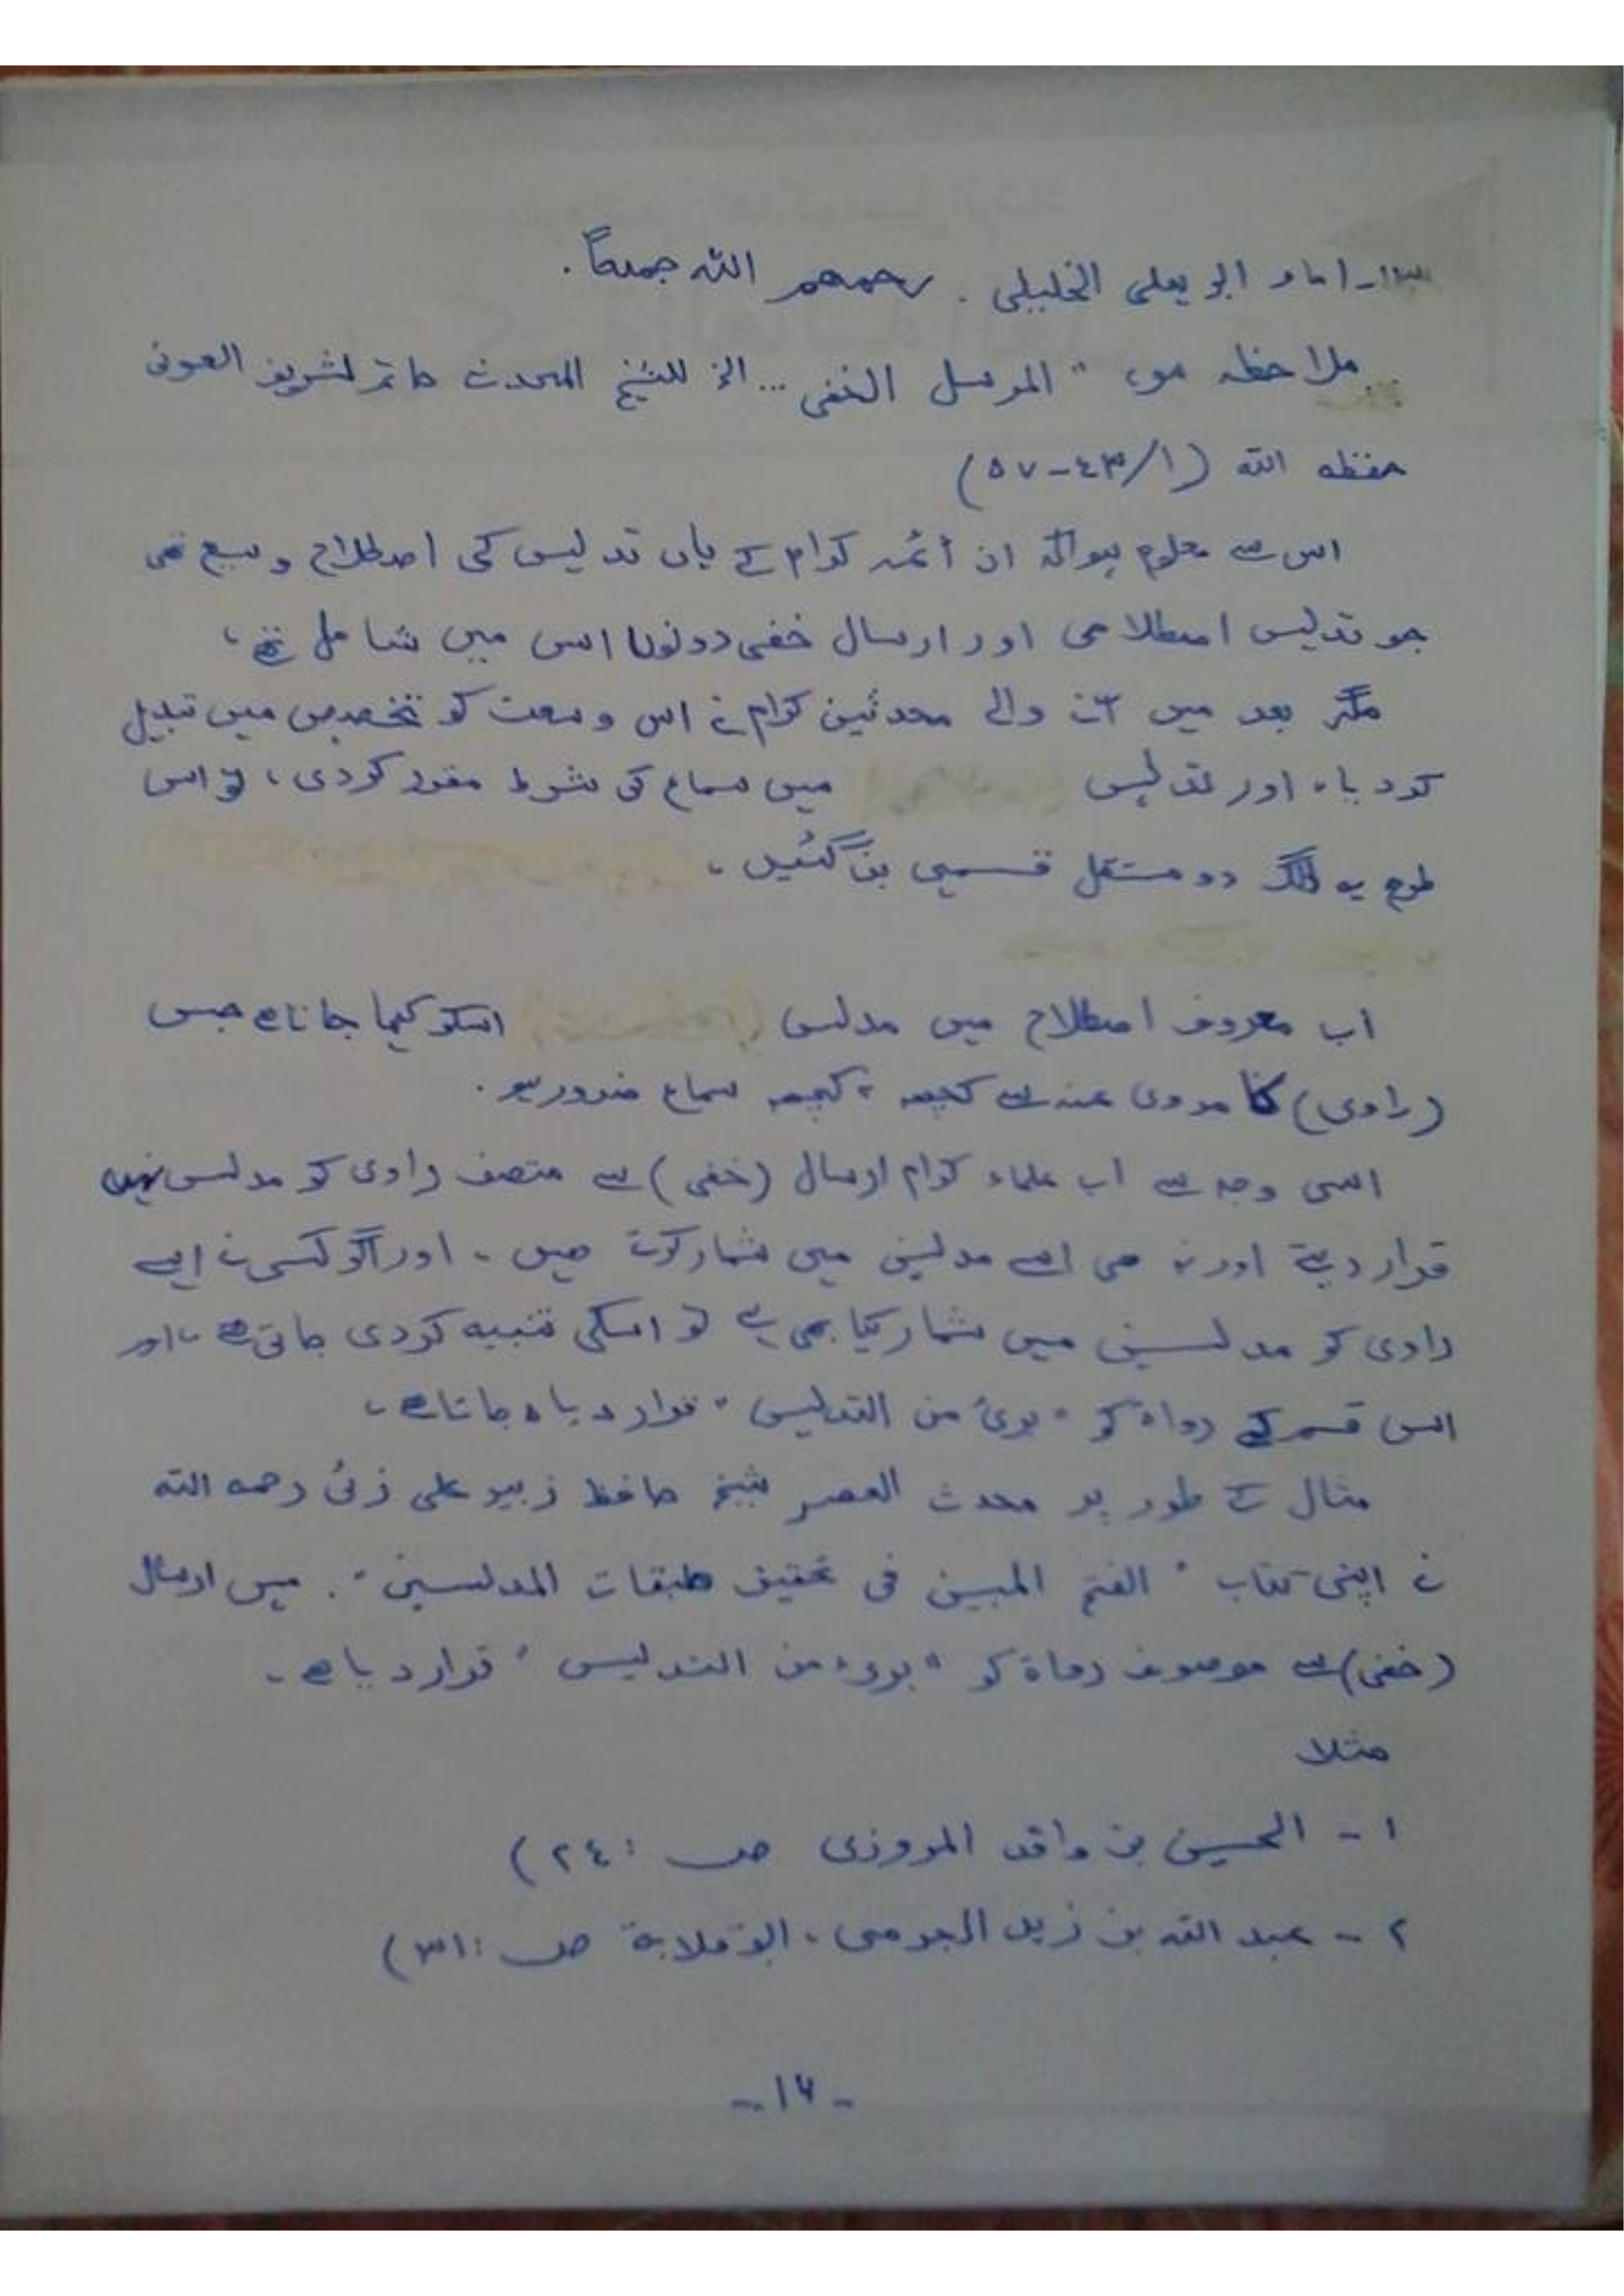 ۱۳۔ امام ابو یعلی الخلیلی . رحمھم اللہ جمیعاً .
ملاحظہ ہو، " المرسل الخفی ... الخ للشیخ المحدث حاتم الشریف العونی
حفظہ اللہ (۱/٤۳-٥۷)
اس سے معلوم ہوا کہ ان أئمہ کرام کے ہاں تدلیس کی اصطلاح وسیع تھی
جو تدلیس اصطلاحی اور ارسال خفی دونوں اس میں شامل تھے،
مگر بعد میں آنے والے محدثین کرام نے اس وسعت کو تخصیص میں تبدیل
کردیا، اور تدلیس میں سماع کی شرط مقرر کردی، تو اس
طرح یہ الگ دو مستقل قسمیں بن گئیں۔
اب معروف اصطلاح میں مدلس اسکو کہا جاتا ہے جس
(راوی) کا مروی عنہ سے کچھ نہ کچھ سماع ضرور ہو .
اسی وجہ سے اب علماء کرام ارسال (خفی) سے متصف راوی کو مدلس نہیں
قرار دیتے اور نہ ھی اسے مدلسین میں شمار کرتے ھیں ۔ اور اگر کسی نے ایسے
راوی کو مدلسین میں شمار کیا بھی ہے تو اسکی تنبیہ کردی جاتی ھے ، اور
اس قسم کے رواۃ کو " برئ من التدلیس " قرار دیا جاتا ھے ۔
مثال کے طور پر محدث العصر شیخ حافظ زبیر علی زئی رحمہ اللہ
نے اپنی کتاب " الفتح المبین فی تحقیق طبقات المدلسین " . میں ارسال
(خفی) سے موصوف رواۃ کو " برئ من التدلیس " قرار دیا ھے ۔
مثلا
۱ - الحسین بن واقد المروزی ص : ۲٤)
۲ - عبد اللہ بن زید الجرمی ، ابو قلابة ص : ۳۱)
- ۱۶ -